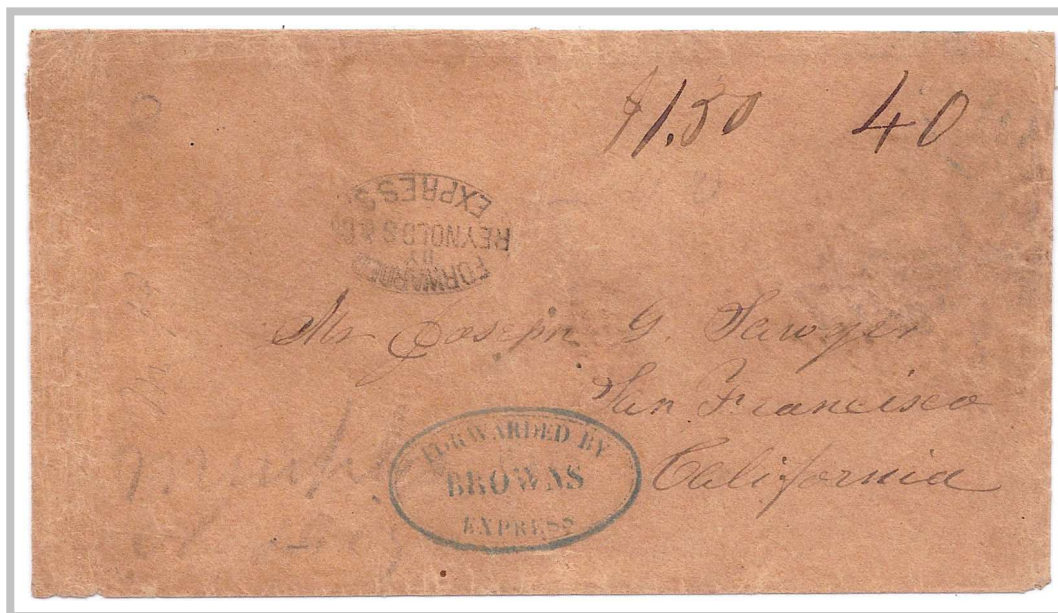 $1.50 40
FORWARDED
BY
REYNOLDS & CO
EXPRESS
Mr Joseph G. Sawyer
San Francisco
California
FORWARDED BY
BROWNS
EXPRESS